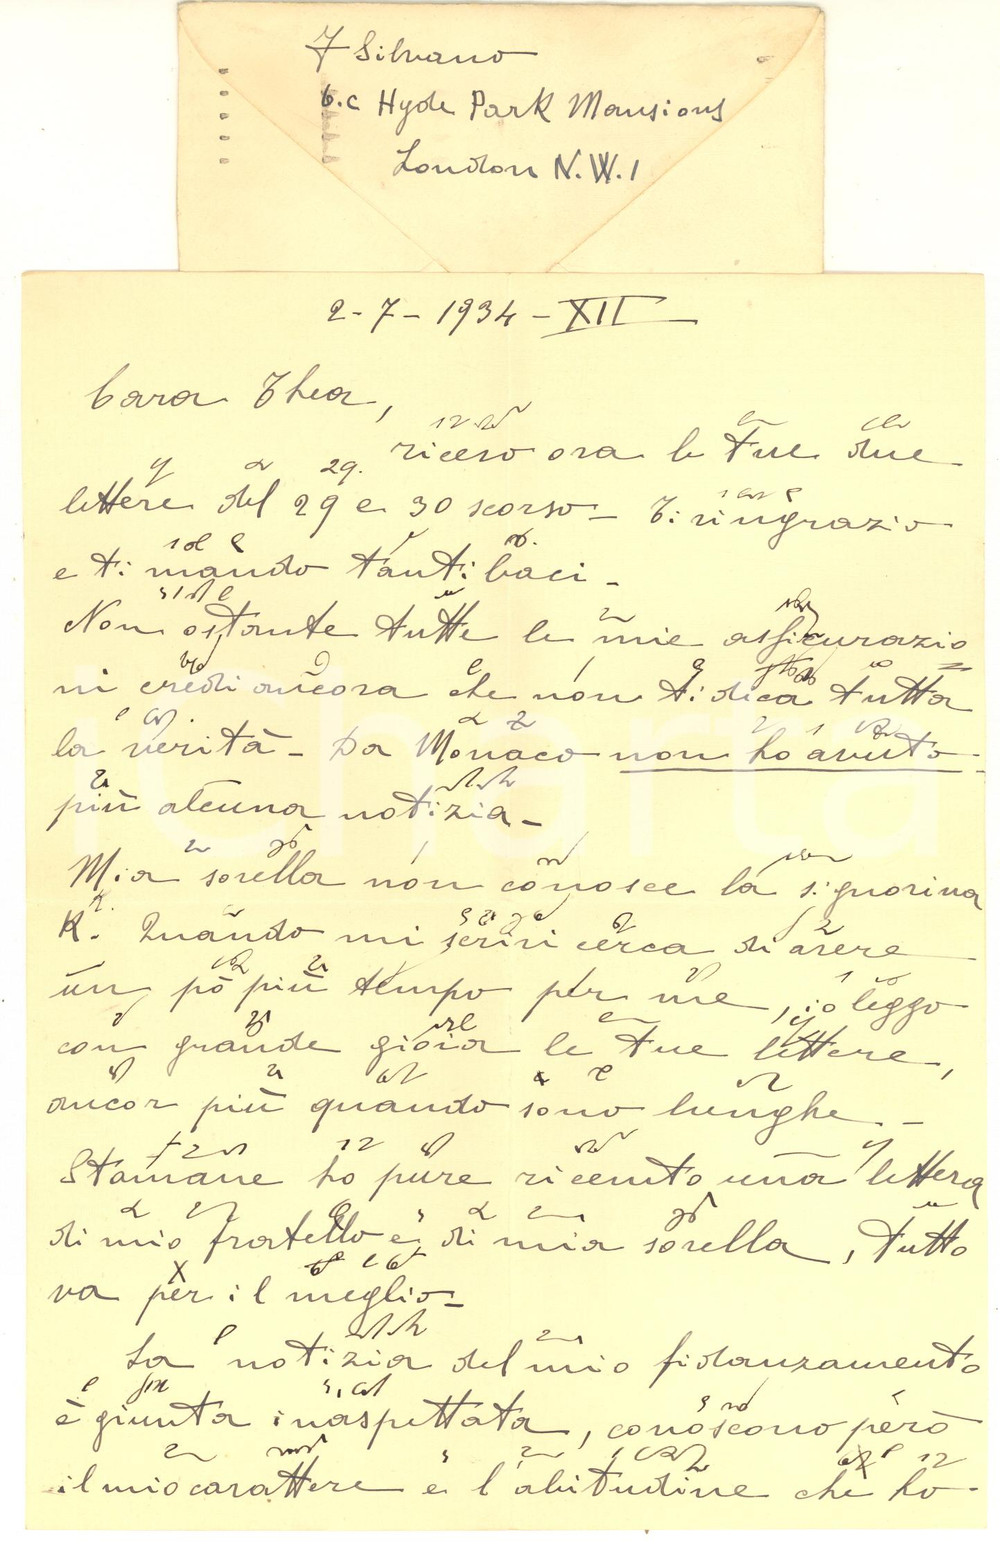 J Silvano
6.c Hyde Park Mansions
London N.W.1
2-7-1934-XII
Cara Thea,
ricevo ora le tue due
lettere del 29 e 30 scorso- Ti ringrazio
e ti mando tanti baci-
Non ostante tutte le mie assicurazio
ni credi ancora che non ti dica tutta
la verità- Da Monaco non ho avuto
più alcuna notizia-
Mia sorella non conosce la signorina
K. Quando mi scrivi cerca di avere
un pò più tempo per me, io leggo
con grande gioia le tue lettere,
ancor più quando sono lunghe-
Stamane ho pure ricevuto una lettera
di mio fratello e di mia sorella, tutto
va per il meglio-
La notizia del mio fidanzamento
è giunta inaspettata, conoscono però
il mio carattere e l'abitudine che ho-